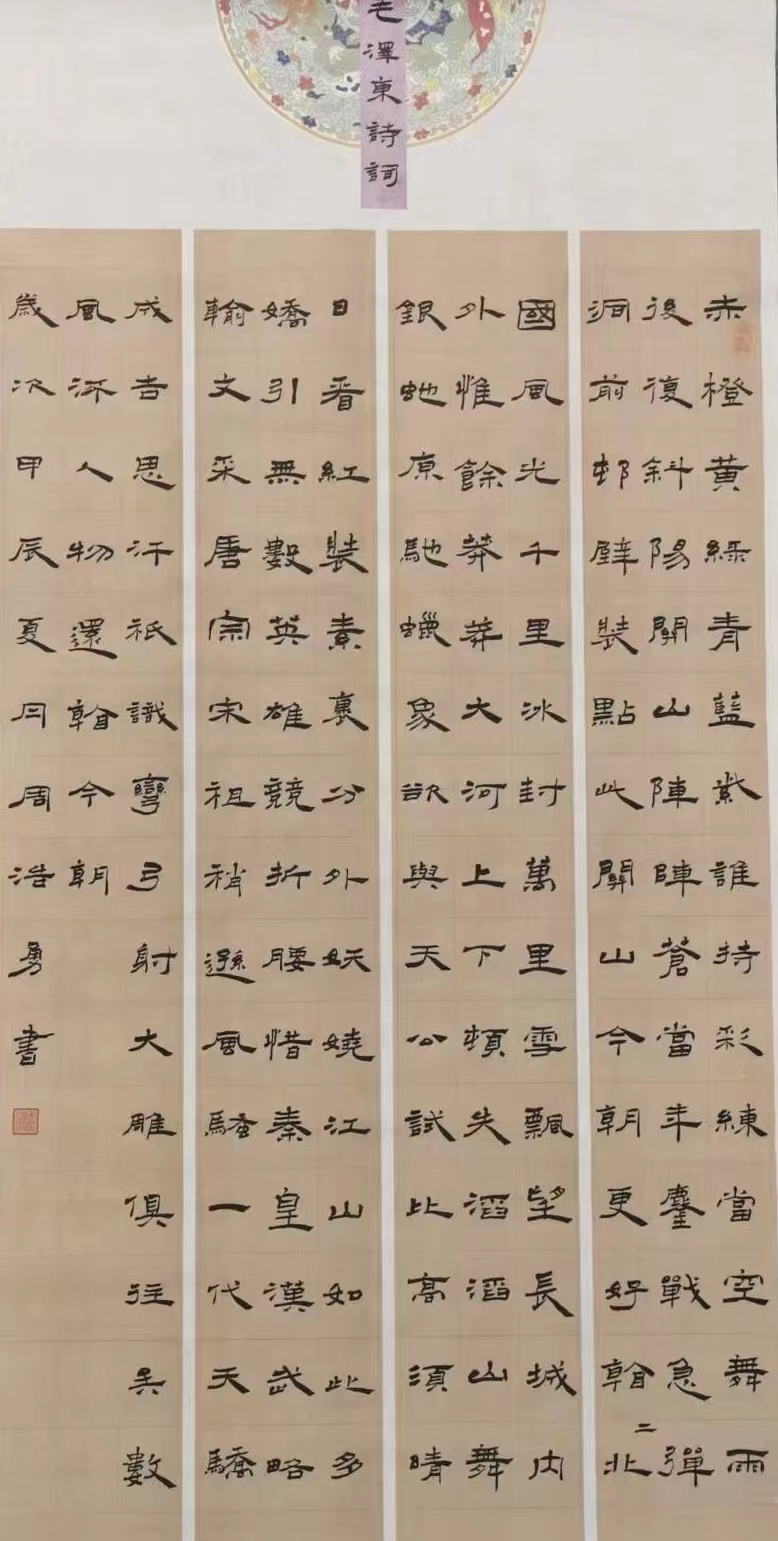 毛澤東詩詞
赤橙黄綠青藍紫誰持彩練當空舞雨
後復斜陽關山陣陣蒼當年鏖戰急彈
洞前邨壁裝點此關山今朝更好看二北
國風光千里冰封萬里雪飄望長城内
外惟餘莽莽大河上下頓失滔滔山舞
銀蛇原馳蠟象欲與天公試比高須晴
日看紅裝素裹分外妖嬈江山如此多
嬌引無數英雄競折腰惜秦皇漢武略
輸文采唐宗宋祖稍遜風騷一代天驕
成吉思汗祇識彎弓射大雕俱往矣數
風流人物還看今朝
歲次甲辰夏月周浩勇書